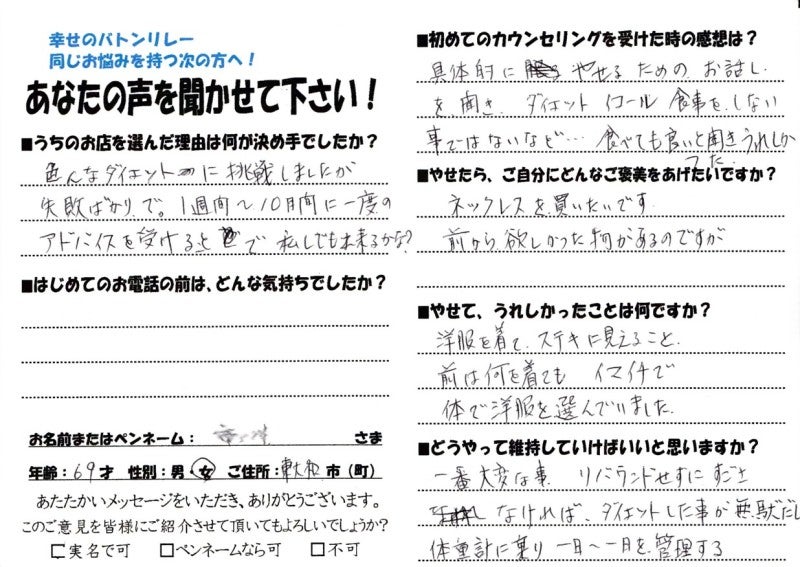 幸せのバトンリレー
同じお悩みを持つ次の方へ！
あなたの声を聞かせて下さい！
■うちのお店を選んだ理由は何が決め手でしたか？
色んなダイエットに挑戦しましたが
失敗ばかりで。1週間～10日間に一度の
アドバイスを受けると で 私しでも出来るかな?
■はじめてのお電話の前は、どんな気持ちでしたか？
お名前またはペンネーム： さま
年齢：69才 性別：男 女 ご住所：東大和 市（町）
あたたかいメッセージをいただき、ありがとうございます。
このご意見を皆様にご紹介させて頂いてもよろしいでしょうか？
□実名で可 □ペンネームなら可 □不可
■初めてのカウンセリングを受けた時の感想は？
具体的に やせるための お話し
を聞き、ダイエット イコール 食事をしない
事ではないなど… 食べても良いと聞きうれしか
った。
■やせたら、ご自分にどんなご褒美をあげたいですか？
ネックレスを買いたいです
前から欲しかった物があるのですが
■やせて、うれしかったことは何ですか？
洋服を着て、ステキに見えること、
前は何を着ても イマイチで
体で洋服を選んでいました
■どうやって維持していけばいいと思いますか？
一番大変な事 リバウンドせずにすごさ
なければ、ダイエットした事が無駄だし
体重計に乗り 一日～一日を管理する